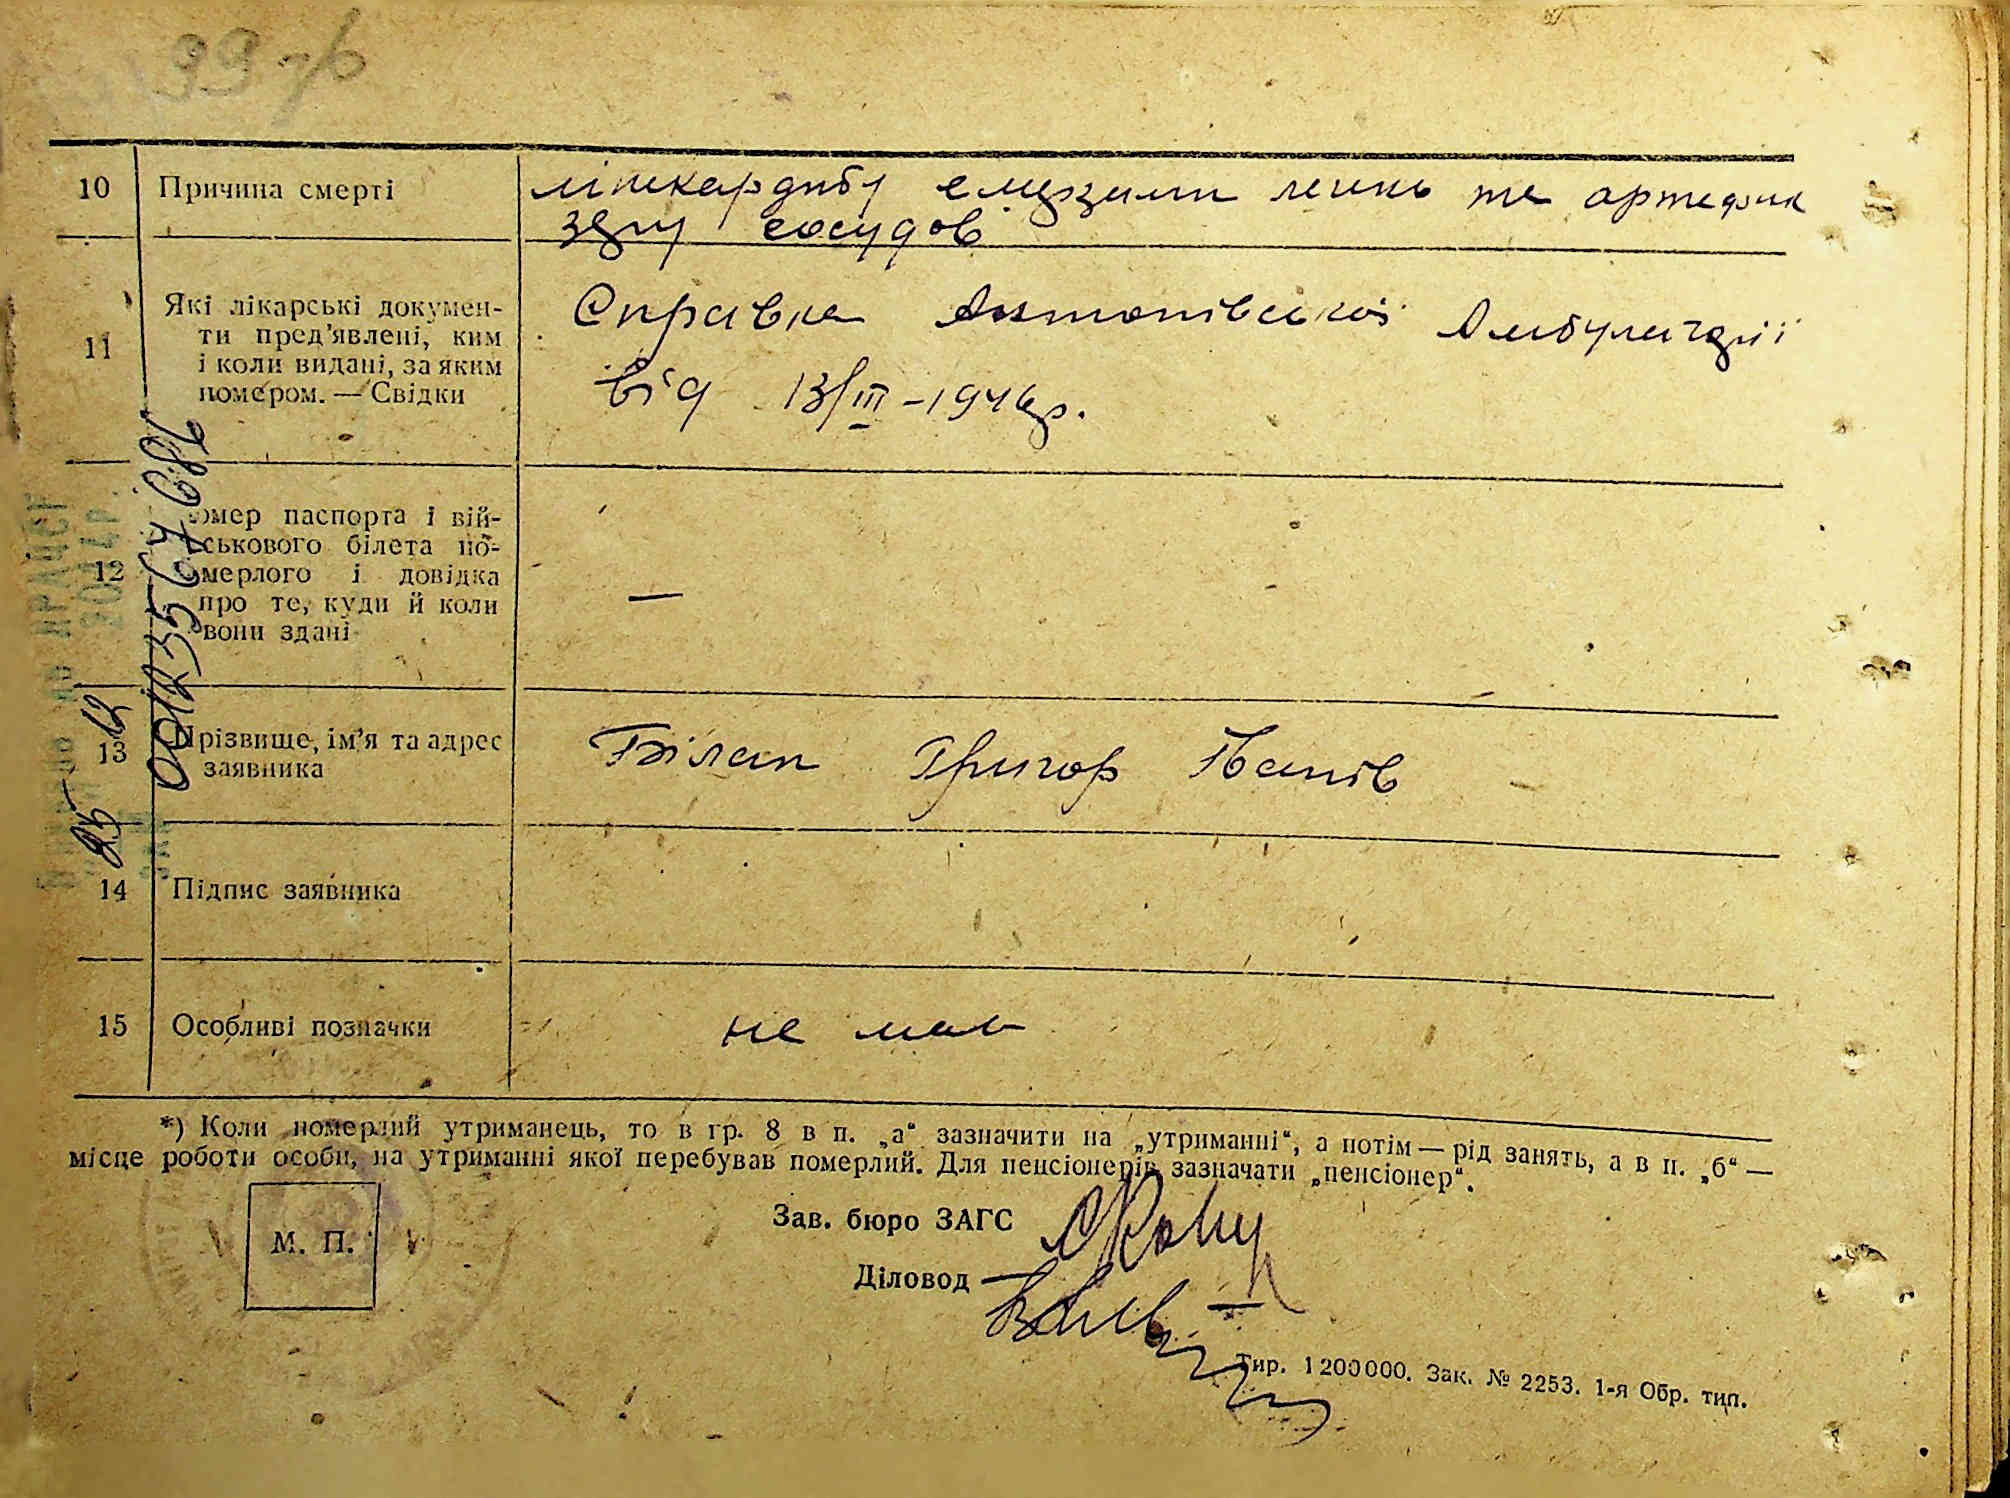 99
10 Причина смерті
зему сосудов
11 Які лікарські докумен-
ти пред'явлені, ким
і коли видані, за яким
номером. — Свідки
Справка Амбулаторії
від 13/III – 1946 р.
12 омер паспорта і вій-
ськового білета по-
мерлого і довідка
про те, куди й коли
вони здані
—
13 Прізвище, ім'я та адрес
заявника
Білан Григор Іванів
14 Підпис заявника
15 Особливі позначки
не має
*) Коли померлий утриманець, то в гр. 8 в п. „а“ зазначити на „утриманні“, а потім — рід занять, а в п. „б“ —
місце роботи особи, на утриманні якої перебував померлий. Для пенсіонерів зазначати „пенсіонер“.
М. П.
Зав. бюро ЗАГС
Діловод
Тир. 1200000. Зак. № 2253. 1-я Обр. тип.